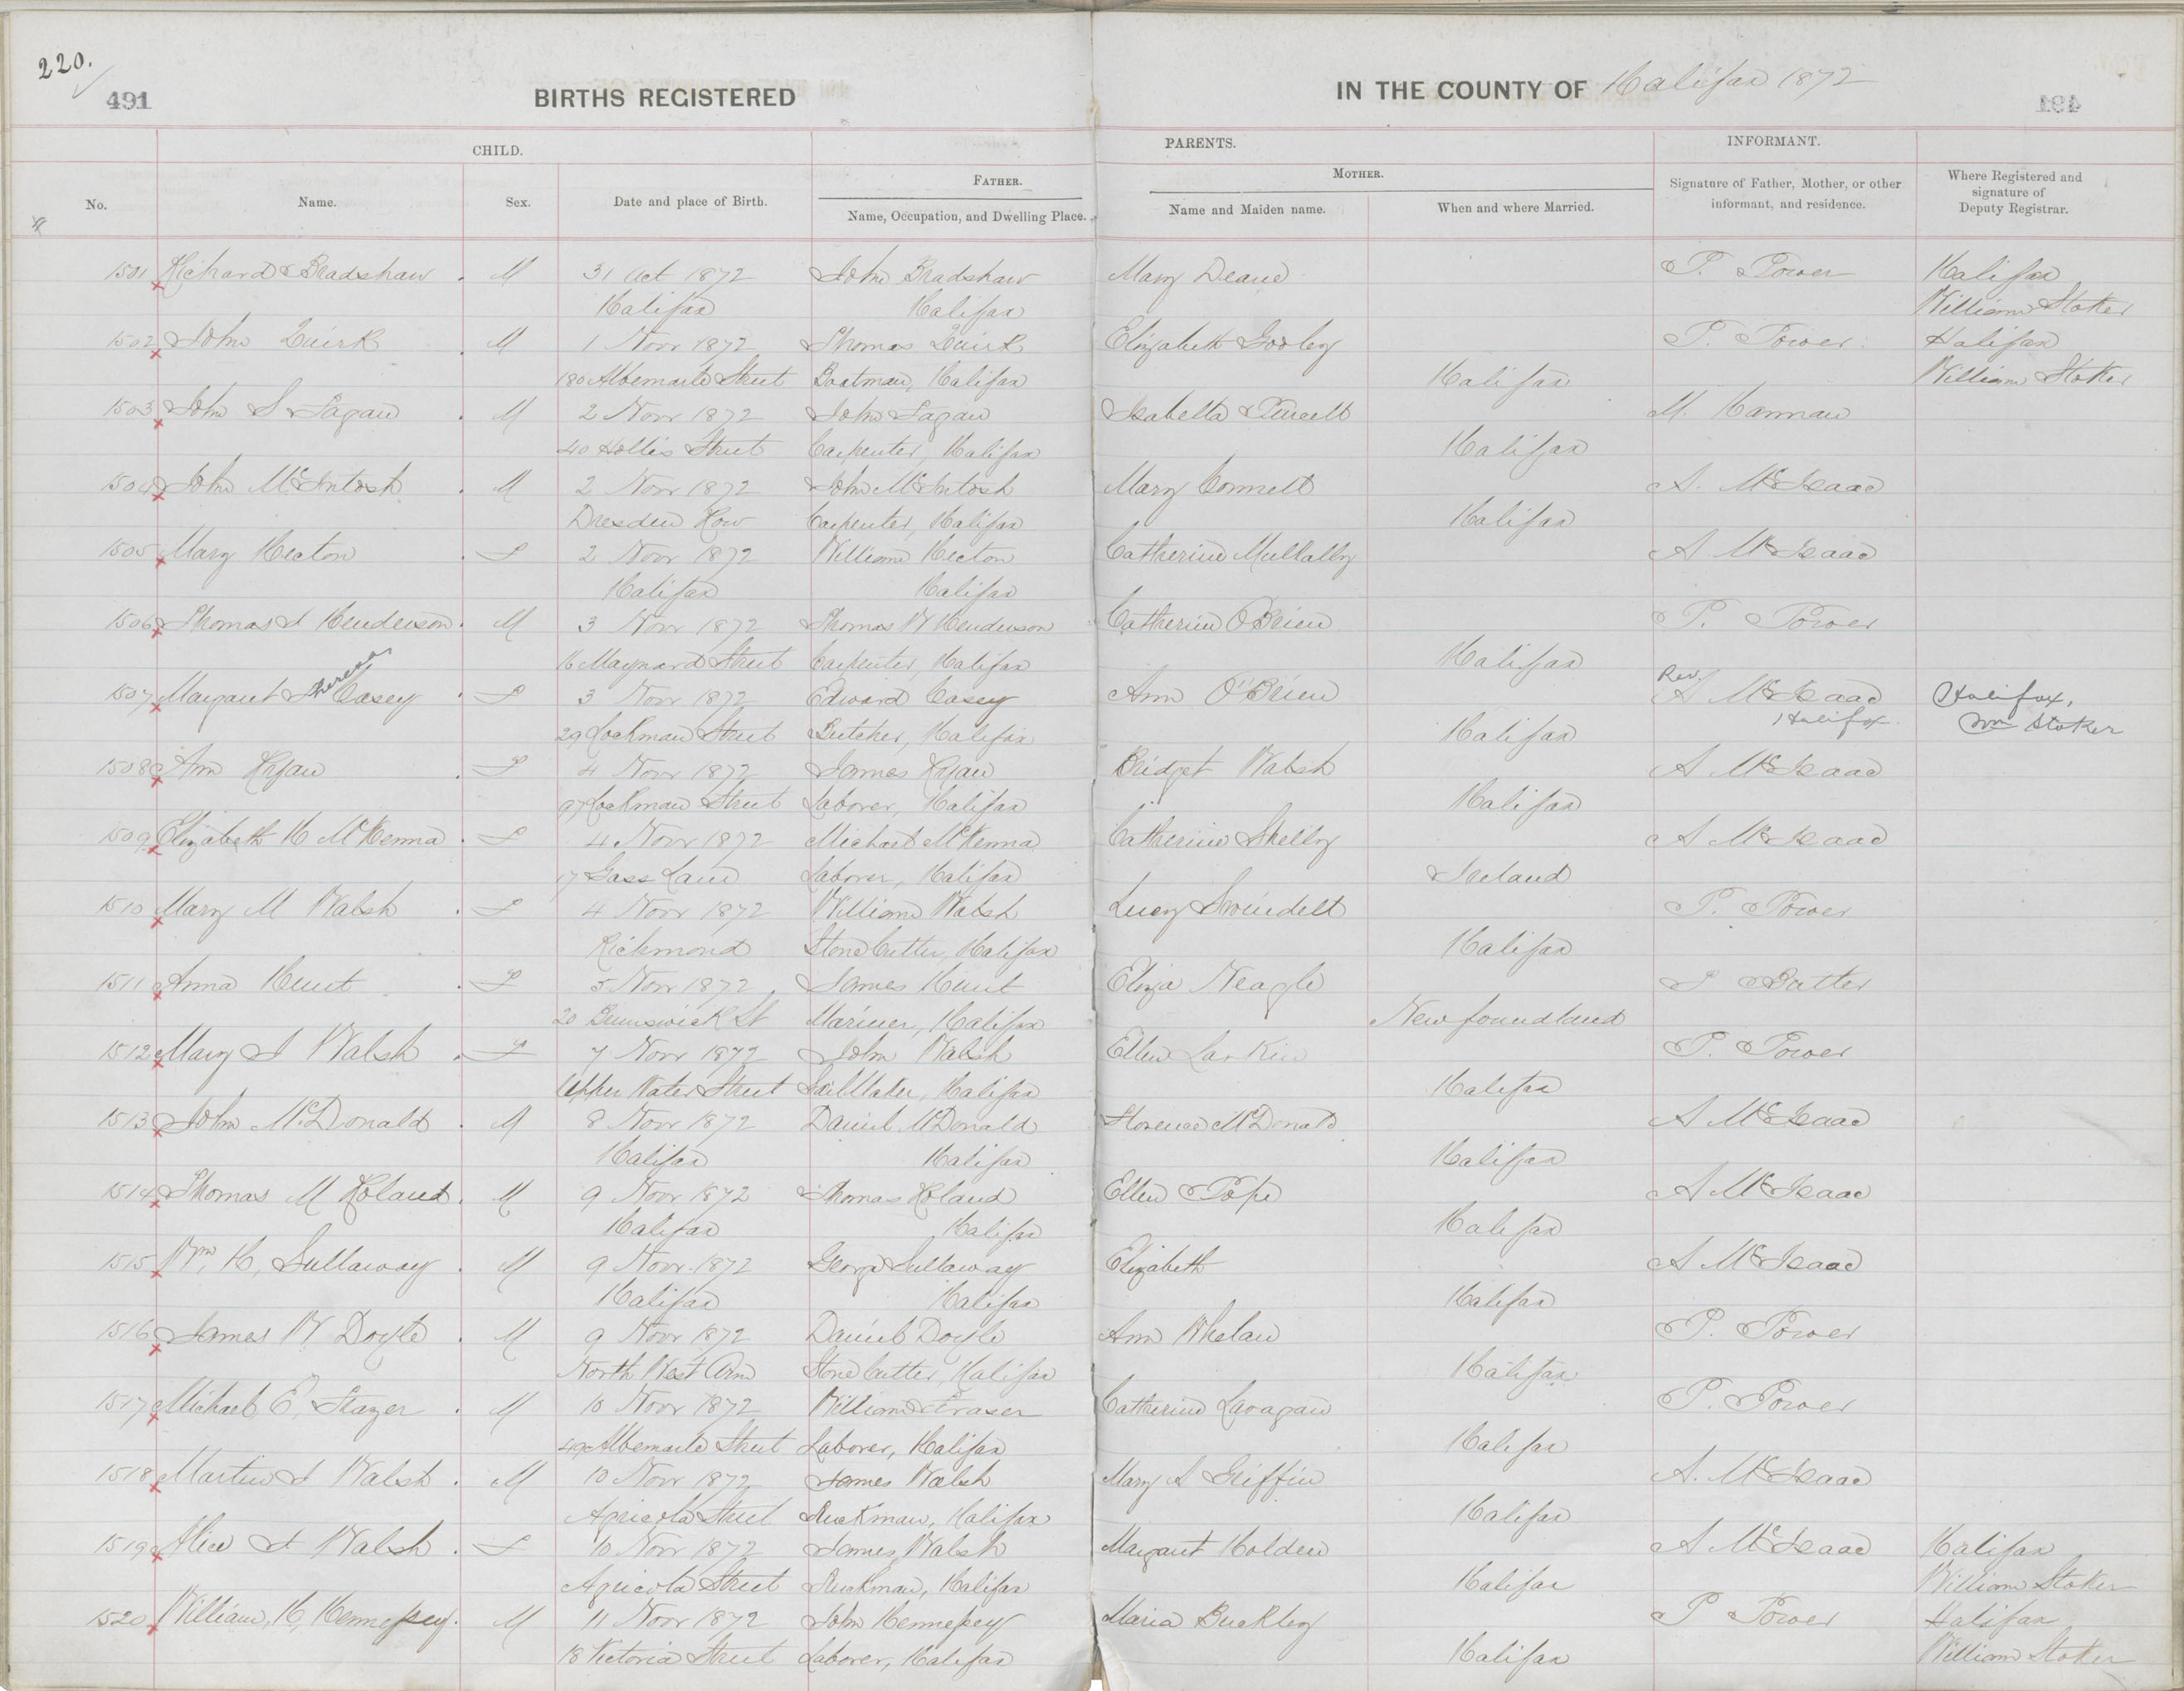 220.
491
BIRTHS REGISTERED
IN THE COUNTY OF Halifax 1872
CHILD.
PARENTS.
INFORMANT.
No.
Name.
Sex.
Date and place of Birth.
FATHER.
Name, Occupation, and Dwelling Place.
MOTHER.
Name and Maiden name.
When and where Married.
Signature of Father, Mother, or other informant, and residence.
Where Registered and signature of Deputy Registrar.
1501 Richard Bradshaw M 31 Oct 1872 John Bradshaw Mary Deane P. Power Halifax
Halifax Halifax William Stoker
1502 John Quirk M 1 Novr 1872 Thomas Quirk Elizabeth P. Power Halifax
180 Albemarle Street Boatman, Halifax Halifax William Stoker
1503 John S Fagan M 2 Novr 1872 John Fagan Isabella M. Hannan
40 Hollis Street Carpenter, Halifax Halifax
1504 John McIntosh M 2 Novr 1872 John McIntosh Mary Connell A. McIsaac
Dresden Row Carpenter, Halifax Halifax
1505 Mary Hecton F 2 Novr 1872 William Hecton Catherine Mullally A McIsaac
Halifax Halifax
1506 Thomas J Henderson M 3 Novr 1872 Thomas W Henderson Catherine O'Brien P. Power
16 Maynard Street Carpenter, Halifax Halifax
1507 Margaret Theresa Casey F 3 Novr 1872 Edward Casey Ann O'Brien Rev. A McIsaac Halifax,
29 Lockman Street Butcher, Halifax Halifax Halifax Wm Stoker
1508 Ann Ryan F 4 Novr 1872 James Ryan Bridget Walsh A McIsaac
97 Lockman Street Laborer, Halifax Halifax
1509 Elizabeth H McKenna F 4 Novr 1872 Michael McKenna Catherine Skelly A McIsaac
17 Gass Lane Laborer, Halifax Ireland
1510 Mary M Walsh F 4 Novr 1872 William Walsh Lucy Swindell P. Power
Richmond Stone Cutter, Halifax Halifax
1511 Anna Hunt F 5 Novr 1872 James Hunt Eliza Neagle Butler
20 Brunswick St Mariner, Halifax Newfoundland
1512 Mary J Walsh F 7 Novr 1872 John Walsh Ellen Larkin P. Power
Upper Water Street SailMaker, Halifax Halifax
1513 John McDonald M 8 Novr 1872 Daniel McDonald Florence McDonald A McIsaac
Halifax Halifax Halifax
1514 Thomas M Roland M 9 Novr 1872 Thomas Roland Ellen Pope A McIsaac
Halifax Halifax Halifax
1515 Wm. H. Sullaway M 9 Novr 1872 George Sullaway Elizabeth A McIsaac
Halifax Halifax Halifax
1516 James W Doyle M 9 Novr 1872 Daniel Doyle Ann Whelan P. Power
North West Arm Stone Cutter, Halifax Halifax
1517 Michael E. M 10 Novr 1872 William Fraser Catherine P. Power
49 Albemarle Street Laborer, Halifax Halifax
1518 Martin J Walsh M 10 Novr 1872 James Walsh Mary A Griffin A. McIsaac
Agricola Street Truckman, Halifax Halifax
1519 Alice J Walsh F 10 Novr 1872 James Walsh Margaret Holden A McIsaac Halifax
Agricola Street Truckman, Halifax Halifax William Stoker
1520 William, H, Hennessey M 11 Novr 1872 John Hennessey Maria Buckley P Power Halifax
18 Victoria Street Laborer, Halifax Halifax William Stoker